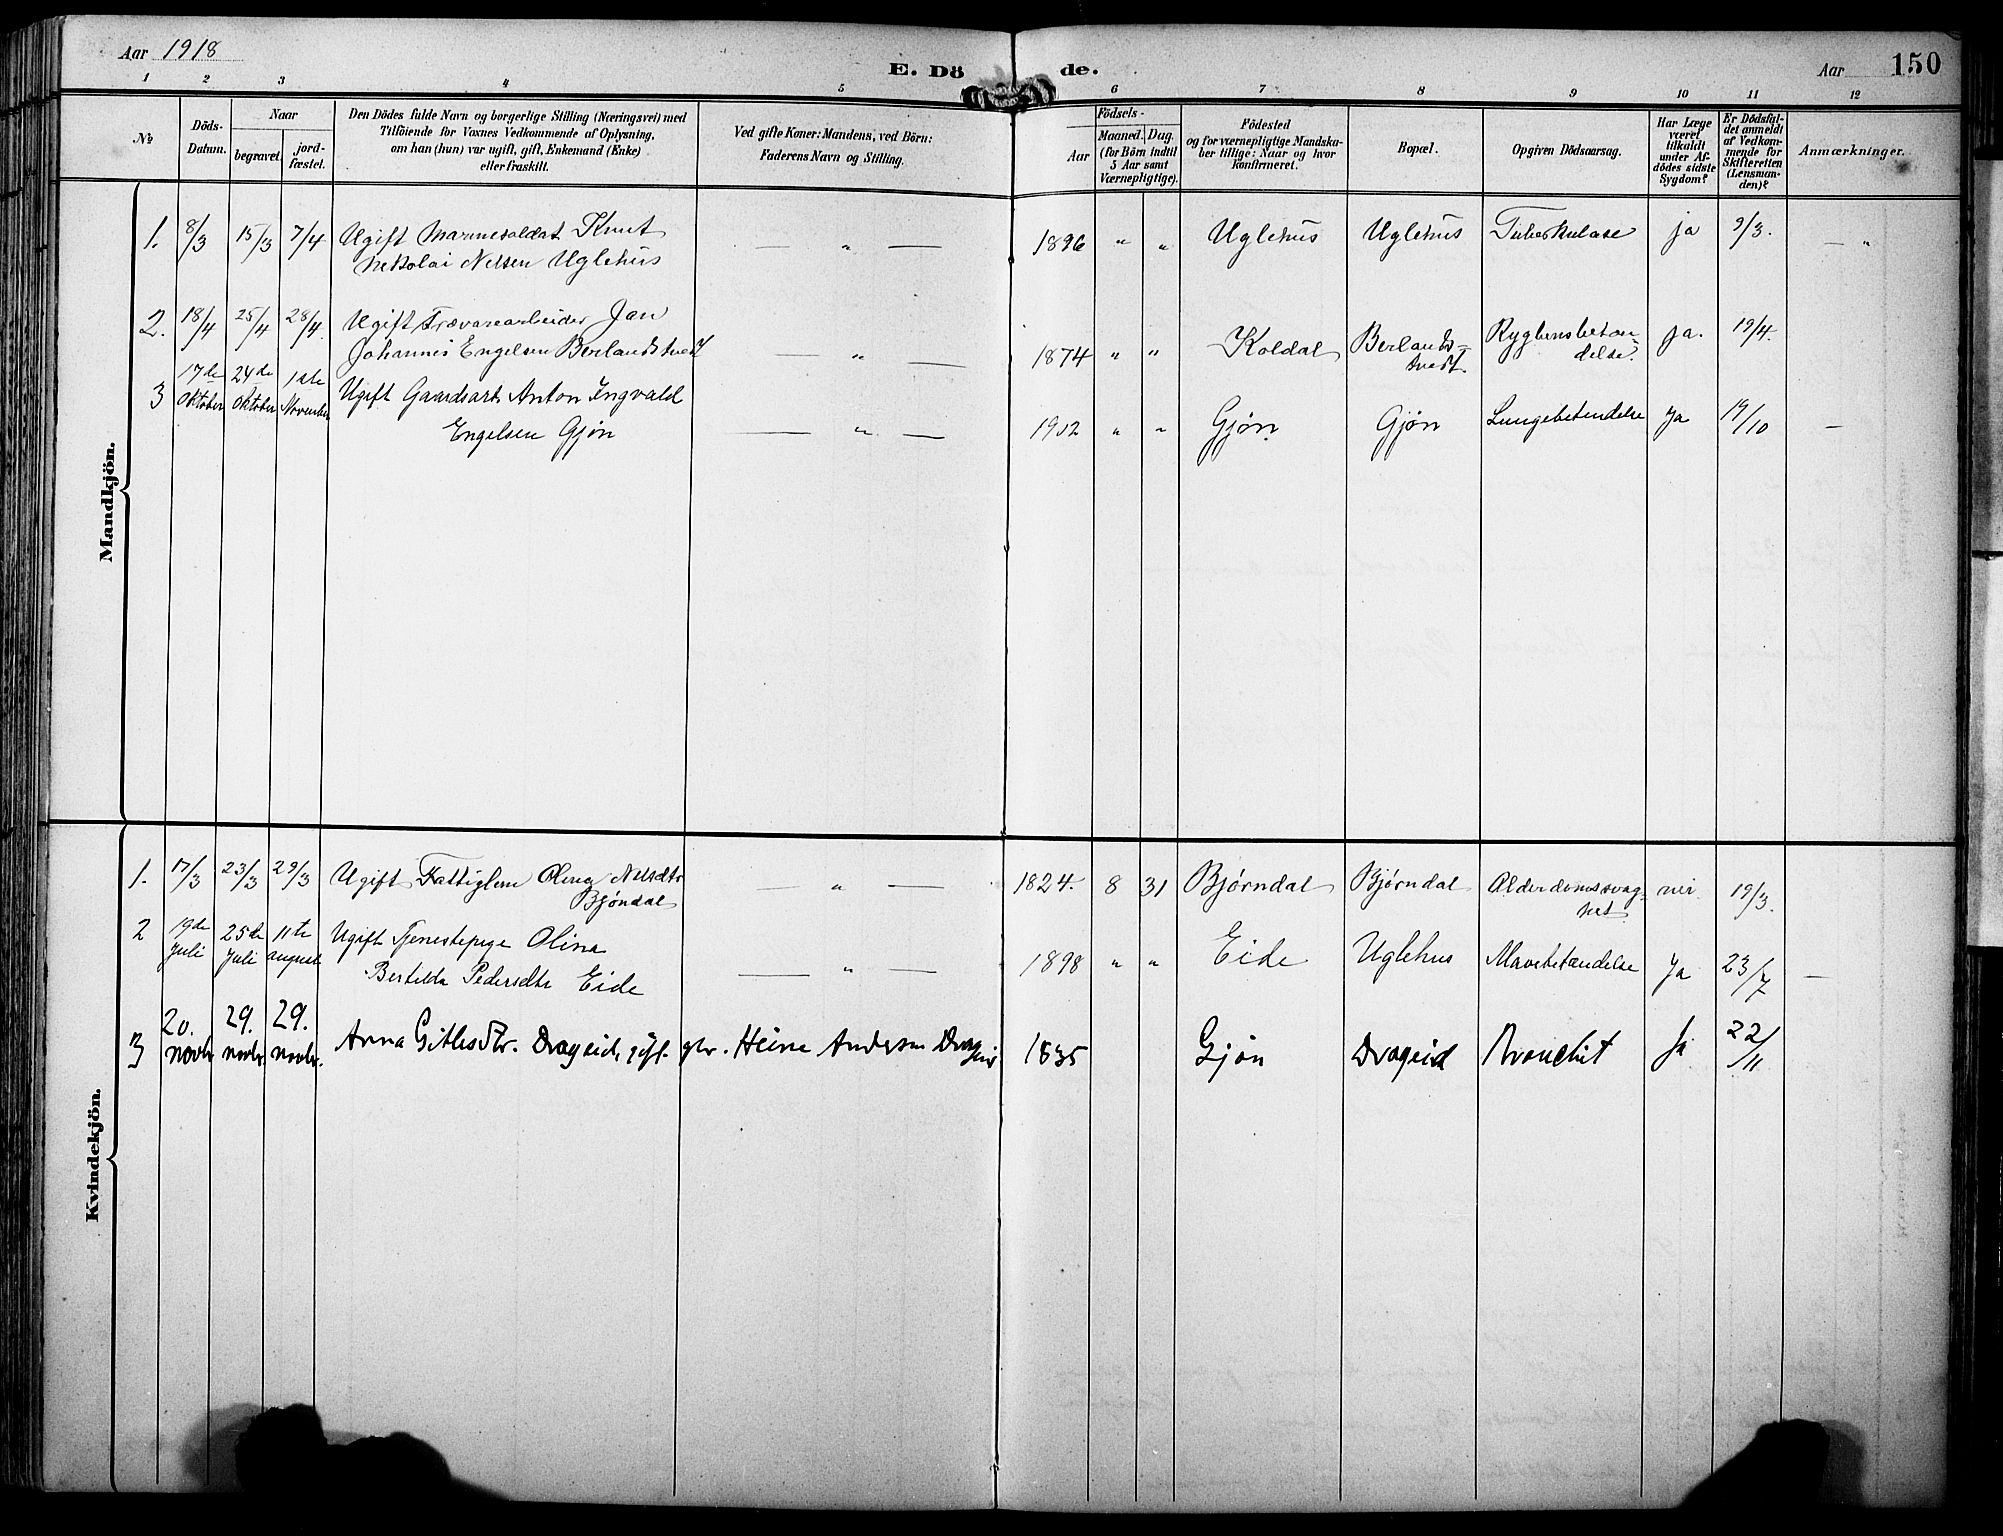 Aar 1918
E. Dö de.
Aar
150
1 2 3 4 5 6 7 8 9 10 11 12
No
Döds-
Datum.
Naar
begravet.
jord-
fæstet.
Den Dödes fulde Navn og borgerlige Stilling (Næringsvei) med
Tilföiende for Voxnes Vedkommende af Oplysning,
om han (hun) var ugift, gift, Enkemand (Enke)
eller fraskilt.
Ved gifte Koner: Mandens, ved Börn:
Faderens Navn og Stilling.
Födsels-
Aar
Maaned. Dag.
(for Börn indtil
5 Aar samt
Værnepligtige).
Födested
og for værnepligtige Mandska-
ber tillige: Naar og hvor
konfirmeret.
Bopæl.
Opgiven Dödsaarsag.
Har Læge
været
tilkaldt
under Af-
dödes sidste
Sygdom?
Er Dödsfal-
det anmeldt
af Vedkom-
mende for
Skifteretten
(Lensman-
den)?
Anmærkninger.
Mandkjön.
1. 8/3 15/3 7/4 Ugift Marinesoldat Knut — „ — 1896 „ „ Uglehus Uglehus Tuberkulose ja 9/3. — „
Nikolai Nelsen Uglehus
2. 18/4 25/4 28/4 Ugift Trævarearbeider Jan
Johannes Engelsen Berlandstvedt — „ — 1874 „ „ Koldal Berlands- Rygbensbeten- ja. 19/4.
tvedt. delse.
3 17de 24de 1ste Ugift Gaardsarb. Anton Ingvald
Oktober Oktober November
Engelsen Gjøn — „ — 1902 „ „ Gjøn Gjøn Lungebetendelse Ja 19/10 —
Kvindekjön.
1. 17/3 23/3 29/3 Ugift Fattiglem Olina Nelsdtr — „ — 1824. 8 31 Bjørndal Bjørndal Alderdomssvag- nei 19/3.
Bjøndal het
2 19de 25de 11te Ugift Tjenestepige Olina
Juli Juli august
Bertilda Pedersdtr Eide — „ — 1898 „ „ Eide Uglehus Mavebetændelse Ja 23/7 —
3 20. 29. 29.
novbr novbr novbr. Anna Gitlesdtr. Drageid, gift. Heine Andersen Drageid 1835 Gjøn Drageid Bronchit Ja 22/11